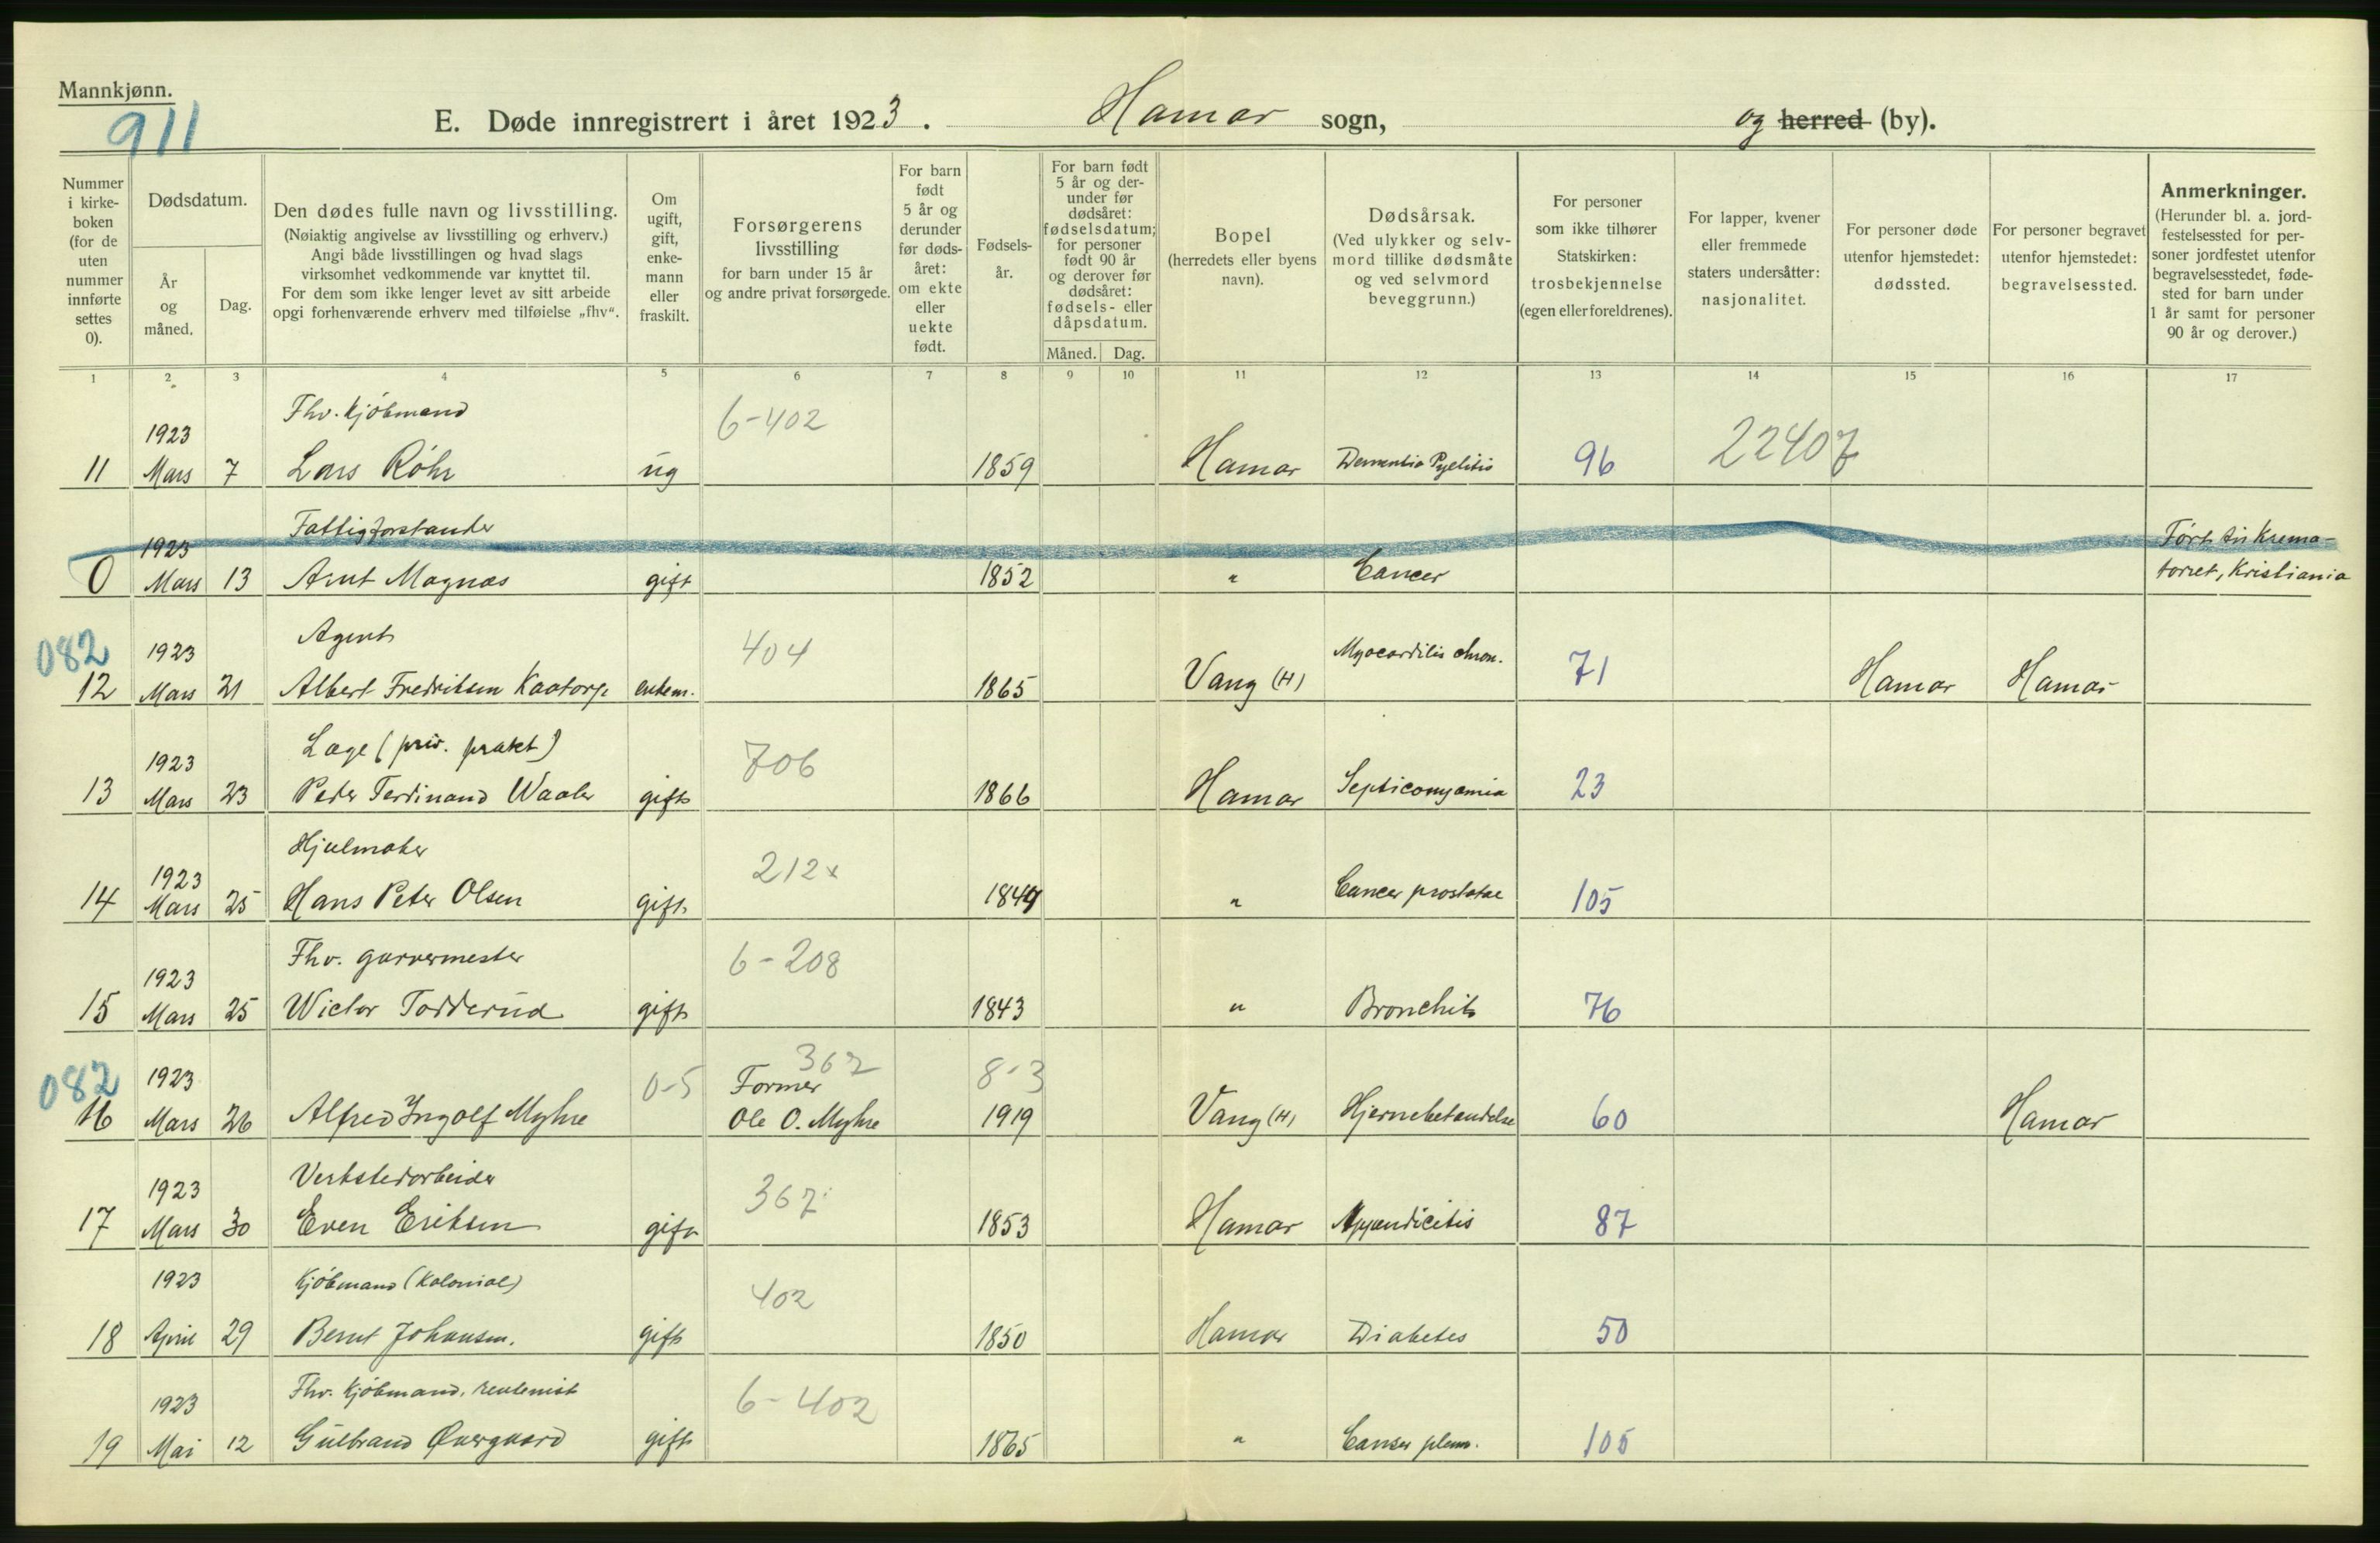 Mannkjønn.
911
E. Døde innregistrert i året 1923. Hamar sogn, og herred (by).
Nummer i kirke-boken (for de uten nummer innførte settes 0).
Dødsdatum.
År og måned.
Dag.
Den dødes fulle navn og livsstilling.
(Nøiaktig angivelse av livsstilling og erhverv.)
Angi både livsstillingen og hvad slags
virksomhet vedkommende var knyttet til.
For dem som ikke lenger levet av sitt arbeide
opgi forhenværende erhverv med tilføielse „fhv“.
Om ugift, gift, enke-mann eller fraskilt.
Forsørgerens livsstilling
for barn under 15 år
og andre privat forsørgede.
For barn født 5 år og derunder før døds-året: om ekte eller uekte født.
Fødsels-år.
For barn født 5 år og der-under før dødsåret: fødselsdatum; for personer født 90 år og derover før dødsåret: fødsels- eller dåpsdatum.
Måned. Dag.
Bopel
(herredets eller byens navn).
Dødsårsak.
(Ved ulykker og selv-mord tillike dødsmåte og ved selvmord beveggrunn.)
For personer som ikke tilhører Statskirken: trosbekjennelse (egen eller foreldrenes).
For lapper, kvener eller fremmede staters undersåtter: nasjonalitet.
For personer døde utenfor hjemstedet: dødssted.
For personer begravet utenfor hjemstedet: begravelsessted.
Anmerkninger.
(Herunder bl. a. jord-festelsessted for per-soner jordfestet utenfor begravelsesstedet, føde-sted for barn under 1 år samt for personer 90 år og derover.)
1 2 3 4 5 6 7 8 9 10 11 12 13 14 15 16 17
1923 Fhv. Kjøbmand 6-402 22407
11 Mars 7 Lars Røhr ug 1859 Hamar Dementia Pyelitis 96
1923 Fattigforstander Ført til Krema-
0 Mars 13 Arnt Magnæs gift 1852 " Cancer toriet, Kristiania
082 1923 Agent 404 Myocarditis chron.
12 Mars 21 Albert Fredriksen Kaatorp enkem. 1865 Vang (H) 71 Hamar Hamar
1923 Læge (priv. prakt) 706
13 Mars 23 Peder Ferdinand Waaler gift 1866 Hamar Septicopyæmia 23
1923 Hjulmaker 212x
14 Mars 25 Hans Peter Olsen gift 1849 " Cancer prostatae 105
1923 Fhv. garvermester 6-208
15 Mars 25 Wictor Todderud gift 1843 " Bronchit 76
082 1923 0-5 Former 367 8-3
16 Mars 26 Alfred Ingolf Myhre Ole O. Myhre 1919 Vang (H) Hjernebetændelse 60 Hamar
1923 Verkstedarbeider 367
17 Mars 30 Even Eriksen gift 1853 Hamar Appendicitis 87
1923 Kjøbmand (Kolonial) 402
18 April 29 Bernt Johansen. gift 1850 Hamar Diabetes 50
1923 Fhv. Kjøbmand, rentenist 6-402
19 Mai 12 Gulbrand Øvergaard gift 1865 " Canser plum. 105